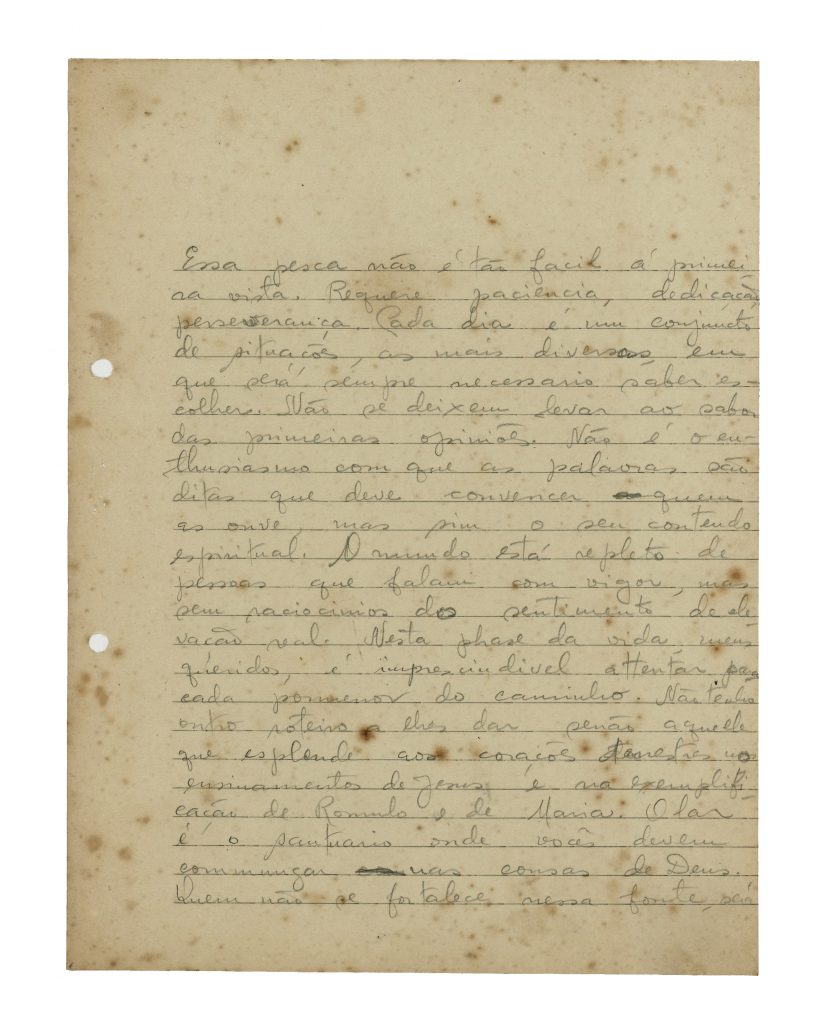 Essa pesca não é tão facil á primei
ra vista. Requere paciencia, dedicação,
perseverança. Cada dia é um conjuncto
de situações, as mais diversas, em
que será sempre necessario saber es-
colher. Não se deixem levar ao sabor
das primeiras opiniões. Não é o en-
thusiasmo com que as palavras são
ditas que deve convencer quem
as ouve, mas sim o seu conteudo
espiritual. O mundo está repleto de
pessoas que falam com vigor, mas
sem raciocinios do sentimento de ele
vação real. Nesta phase da vida, meus
queridos, é imprescindivel attentar para
cada pormenor do caminho. Não tenho
outro roteiro a lhes dar senão aquelle
que esplende aos corações terrestres nos
ensinamentos de Jesus e na exemplifi-
cação de Romulo e de Maria. O lar
é o santuario onde vocês devem
commungar nas cousas de Deus.
Quem não se fortalece nessa fonte, será